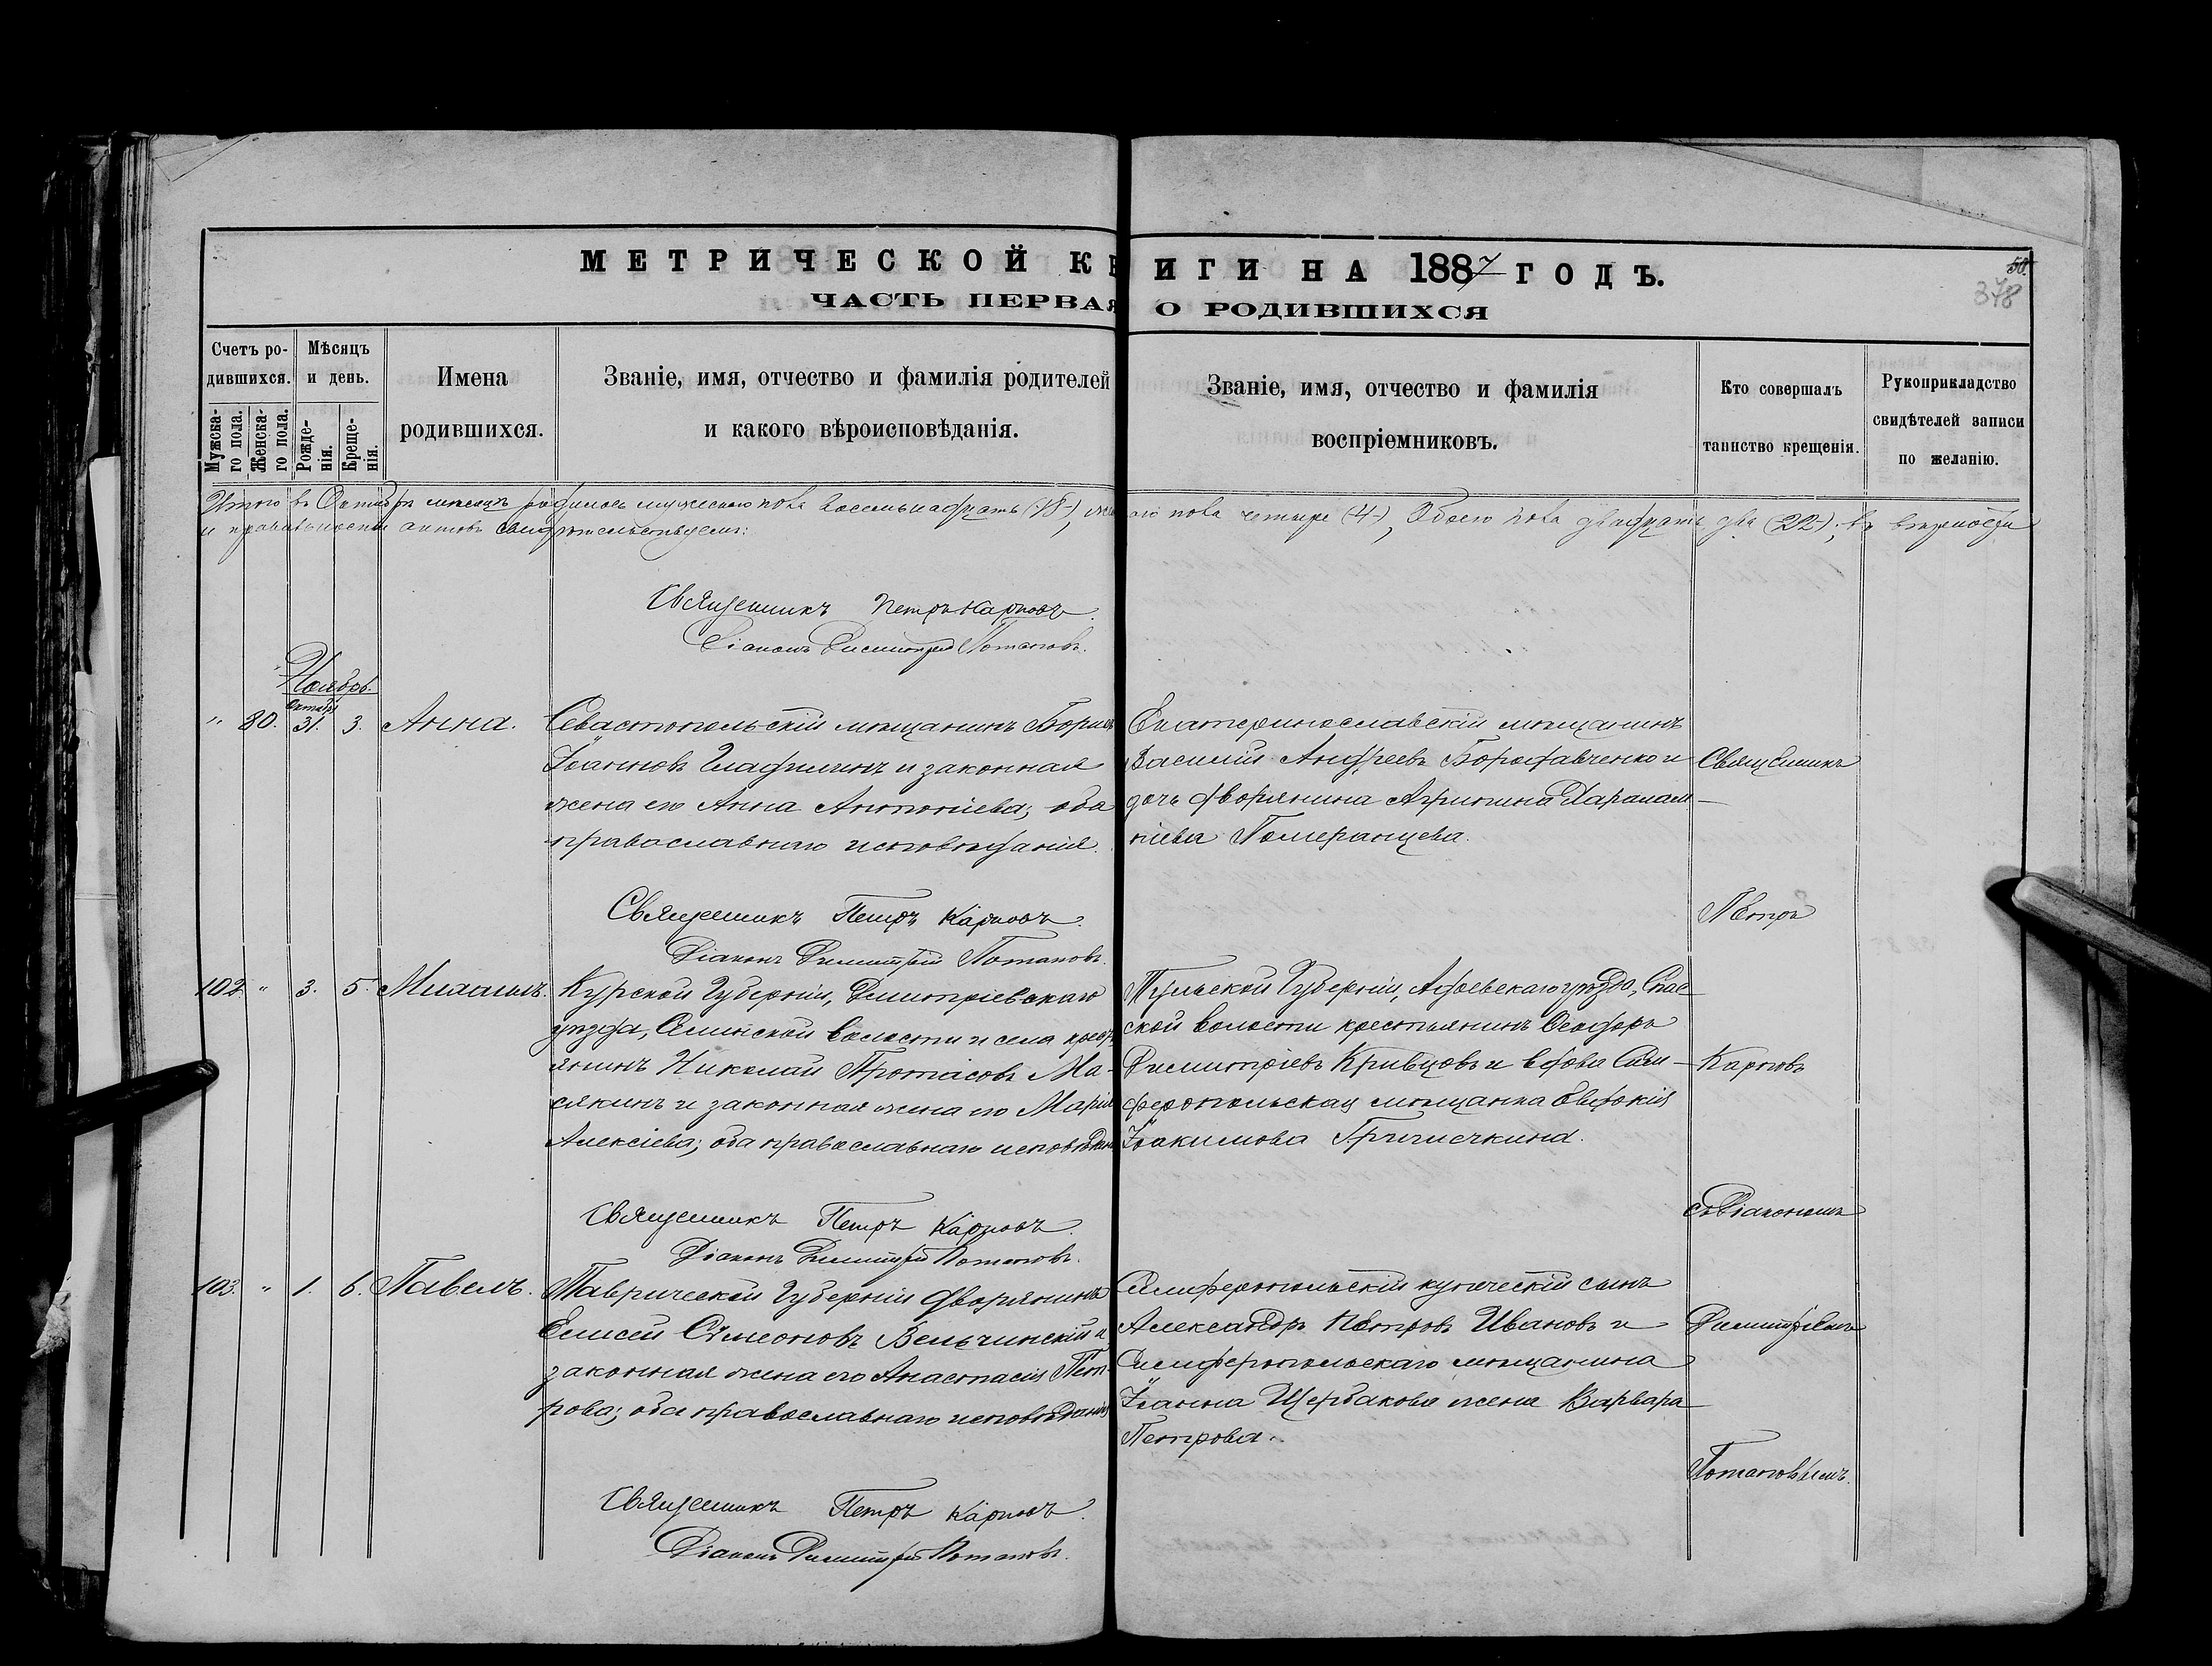 МЕТРИЧЕСКОЙ КНИГИ НА 1887 ГОДЪ.
ЧАСТЬ ПЕРВАЯ О РОДИВШИХСЯ
50.
378
Счетъ родившихся.
Мужскаго пола.
Женскаго пола.
Мѣсяцъ и день.
Рожденія.
Крещенія.
Имена родившихся.
Званіе, имя, отчество и фамилія родителей
и какого вѣроисповѣданія.
Званіе, имя, отчество и фамилія
воспріемниковъ.
Кто совершалъ
таинство крещенія.
Рукоприкладство
свидѣтелей записи
по желанію.
Итого въ Октябрѣ мѣсяцѣ родилось мужескаго пола восемьнадцать (18), женскаго пола четыре (4), Обоего пола двадцать два (22); въ вѣрности
и правильности актовъ свидѣтельствуемъ:
Священникъ Петръ Карповъ.
Діаконъ Димитрій Потаповъ.
Ноябрь.
Октября
" 80. 31. 3. Анна.
Севастопольскій мѣщанинъ Борисъ
Іоанновъ и законная
жена его Анна Антоніева; оба
православнаго исповѣданія.
Екатеринославскій мѣщанинъ
Василій Андреевъ и
дочь дворянина Агрипина Харалам-
піева Померанцева.
Священникъ Петръ Карповъ.
Діаконъ Димитрій Потаповъ.
102. " 3. 5. Михаилъ.
Курской Губерніи, Димитріевскаго
уѣзда, волости и села крест-
янинъ Николай Протасовъ Ма-
сякинъ и законная жена его Марія
Алексіева; оба православнаго исповѣданія
Тульской Губерніи, уѣзда, Спас-
ской волости крестьянинъ Ѳеодоръ
Димитріевъ Кривцовъ и вдова Сим-
феропольская мѣщанка Евдокія
Іоакимова Гричичкина.
Священникъ Петръ Карповъ.
Діаконъ Димитрій Потаповъ.
103. " 1. 6. Павелъ.
Таврической Губерніи дворянинъ
Елисей Симеоновъ Вельчинскій и
законная жена его Анастасія Пет-
рова; оба православнаго исповѣданія
Симферопольскій купеческій сынъ
Александръ Петровъ Ивановъ и
Симферопольскаго мѣщанина
Іоанна Щербакова жена Варвара
Петрова.
Священникъ Петръ Карповъ.
Діаконъ Димитрій Потаповъ.
Священникъ
Петръ
Карповъ
съ Діакономъ
Димитріемъ
Потаповымъ.